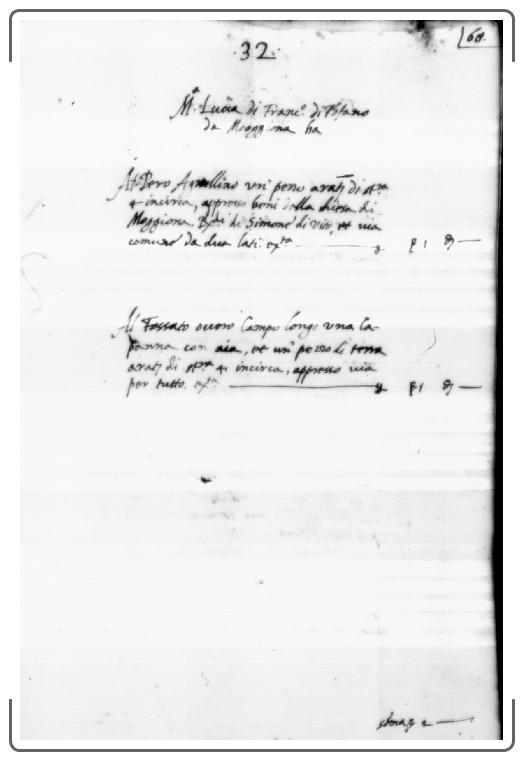 68.
32.
M.ª Lucia di Franc.º di
da Moggiona ha
Al Pero Agnellino un' pezzo arat.
4 incirca, appresso beni della chiesa di
Moggiona di Simone di Vito, et via
comune da dua lati. ext.ª
Al Fossato overo Campo longo una ca-
panna con aia, et un' pezzo di terra
arat. di st.ª 4 incirca, appresso via
per tutto. ext.ª